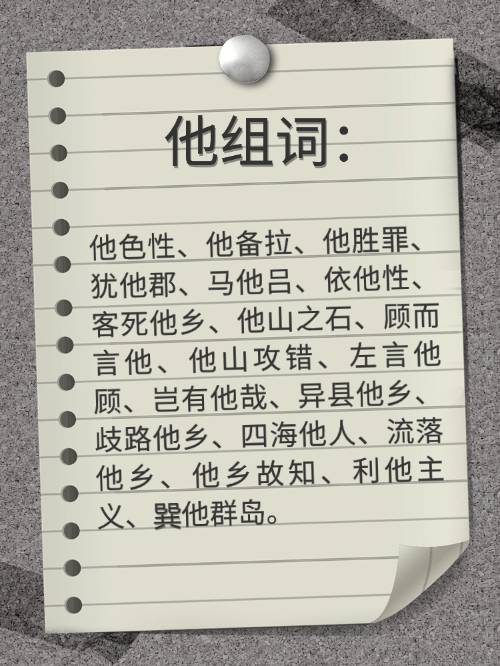 他组词：
他色性、他备拉、他胜罪、
犹他郡、马他吕、依他性、
客死他乡、他山之石、顾而
言他、他山攻错、左言他
顾、岂有他哉、异县他乡、
歧路他乡、四海他人、流落
他乡、他乡故知、利他主
义、巽他群岛。